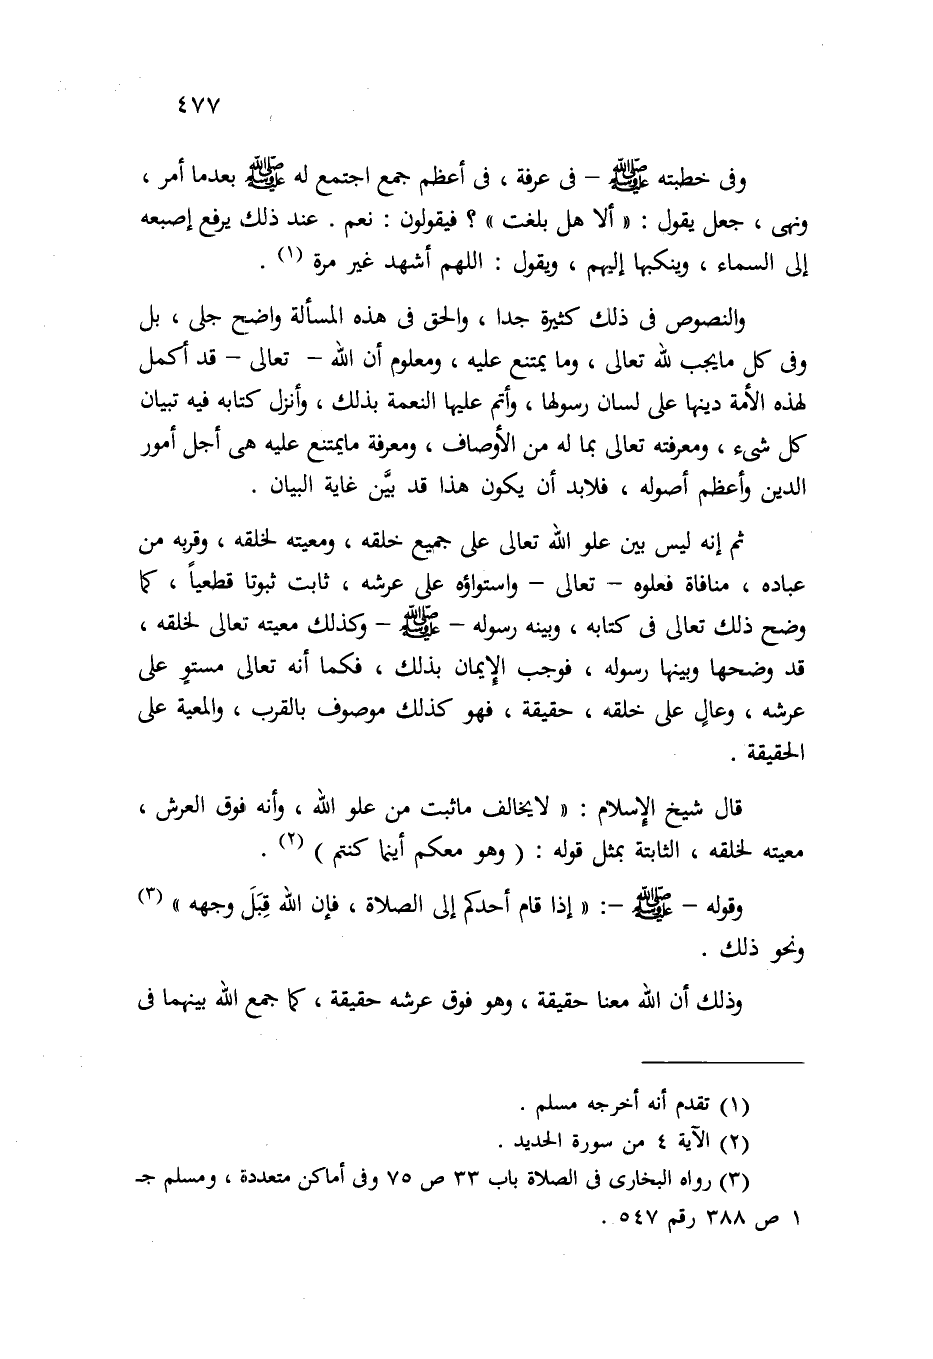 ٤٧٧
وفى خطبته ﷺ – فى عرفة ، فى أعظم جمع اجتمع له ﷺ بعدما أمر ،
ونهى ، جعل يقول : « ألا هل بلغت » ؟ فيقولون : نعم . عند ذلك يرفع إصبعه
إلى السماء ، وينكبها إليهم ، ويقول : اللهم أشهد غير مرة (١) .
والنصوص فى ذلك كثيرة جدا ، والحق فى هذه المسألة واضح جلى ، بل
وفى كل مايجب لله تعالى ، وما يمتنع عليه ، ومعلوم أن الله – تعالى – قد أكمل
لهذه الأمة دينها على لسان رسولها ، وأتم عليها النعمة بذلك ، وأنزل كتابه فيه تبيان
كل شىء ، ومعرفته تعالى بما له من الأوصاف ، ومعرفة مايمتنع عليه هى أجل أمور
الدين وأعظم أصوله ، فلابد أن يكون هذا قد بيَّن غاية البيان .
ثم إنه ليس بين علو الله تعالى على جميع خلقه ، ومعيته لخلقه ، وقربه من
عباده ، منافاة فعلوه – تعالى – واستواؤه على عرشه ، ثابت ثبوتا قطعياً ، كما
وضح ذلك تعالى فى كتابه ، وبينه رسوله – ﷺ – وكذلك معيته تعالى لخلقه ،
قد وضحها وبينها رسوله ، فوجب الإيمان بذلك ، فكما أنه تعالى مستوٍ على
عرشه ، وعالٍ على خلقه ، حقيقة ، فهو كذلك موصوف بالقرب ، والمعية على
الحقيقة .
قال شيخ الإسلام : « لايخالف ماثبت من علو الله ، وأنه فوق العرش ،
معيته لخلقه ، الثابتة بمثل قوله : ( وهو معكم أينما كنتم ) (٢) .
وقوله – ﷺ –: « إذا قام أحدكم إلى الصلاة ، فإن الله قِبَلَ وجهه » (٣)
ونحو ذلك .
وذلك أن الله معنا حقيقة ، وهو فوق عرشه حقيقة ، كما جمع الله بينهما فى
(١) تقدم أنه أخرجه مسلم .
(٢) الآية ٤ من سورة الحديد .
(٣) رواه البخارى فى الصلاة باب ٣٣ ص ٧٥ وفى أماكن متعددة ، ومسلم جـ
١ ص ٣٨٨ رقم ٥٤٧ .